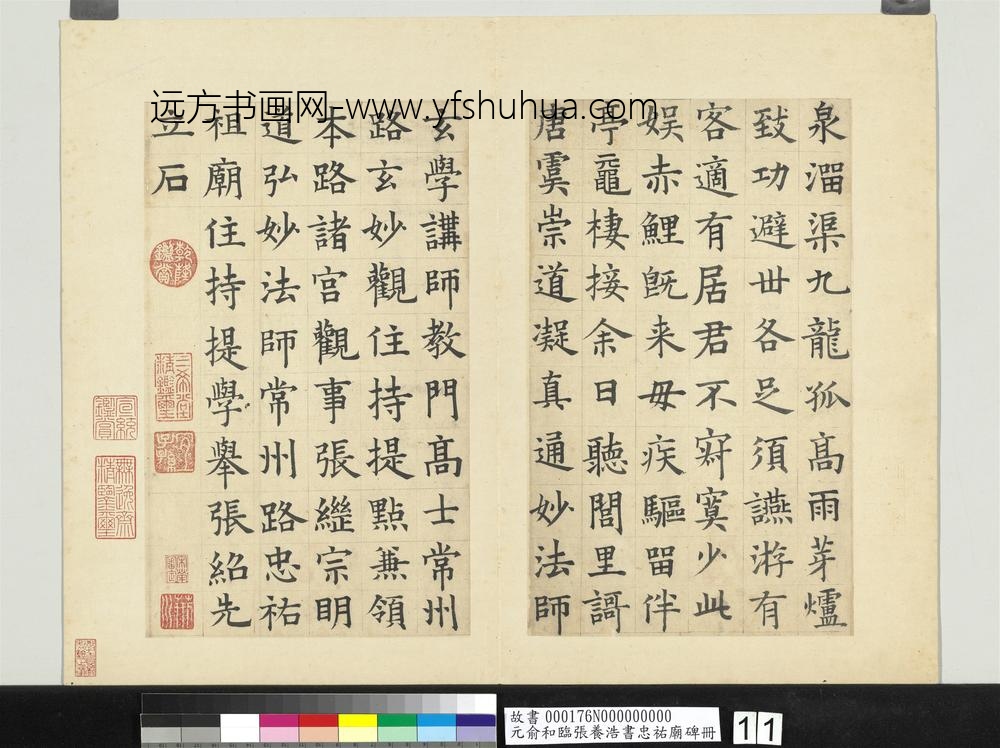 远方书画网-www.yfshuhua.com
泉溜渠九龍孤高雨芽爐
致功避世各足須讌游有
客適有居君不寂寞少此
娛赤鯉既来毋疾驅留伴
亭黽棲接余日聽閭里謌
唐虞崇道凝真通妙法師
玄學講師教門高士常州
路玄妙觀住持提點兼領
本路諸宮觀事張繼宗明
道弘妙法師常州路忠祐
祖廟住持提學舉張紹先
立石
乾隆鑑賞
三希堂精鑑璽
宜子孫
宣統鑑賞
無逸齋精鑑璽
故書 000176N000000000
元俞和臨張養浩書忠祐廟碑冊
11